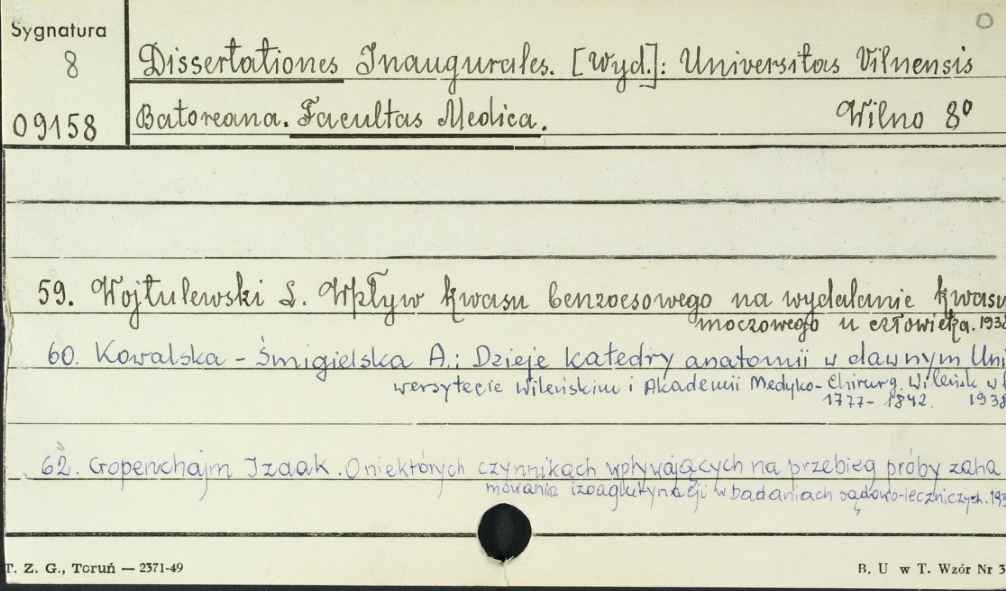 Sygnatura
8
09158
Dissertationes Inaugurales. [Wyd.]: Universitas Vilnensis
Batoreana. Facultas Medica. Wilno 8°
59. Wojtulewski S. Wpływ kwasu benzoesowego na wydalanie kwasu
moczowego u człowieka. 193
60. Kowalska - Śmigielska A.: Dzieje katedry anatomii w dawnym Uni
wersytecie Wileńskim i Akademii Medyko-Chirurg. Wileńsk w
1777-1842. 1938
62. Gopenchajm Izaak. O niektórych czynnikach wpływających na przebieg próby zaha
mowania izoaglutynacji w badaniach sądowo-leczniczych. 193
T. Z. G., Toruń — 2371-49
B. U w T. Wzór Nr 3